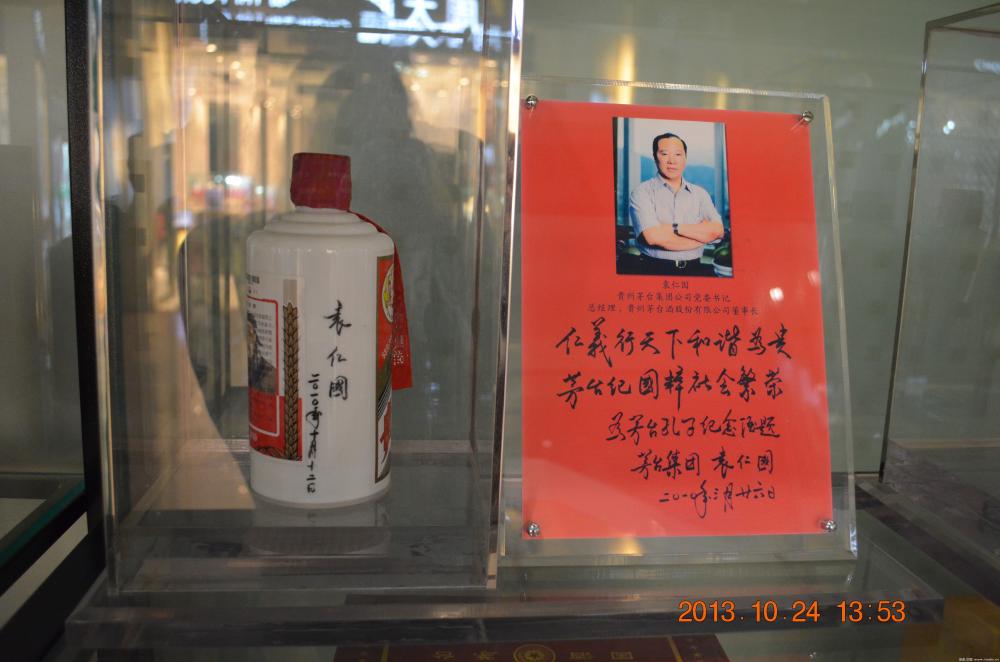 袁仁國
二〇一〇年十月十二日
袁仁国
贵州茅台集团公司党委书记
总经理、贵州茅台酒股份有限公司董事长
仁義行天下和谐为贵
茅台纪國粹社会繁荣
为茅台孔子纪念酒题
茅台集团 袁仁国
二〇一〇年三月廿六日
2013.10.24 13:53